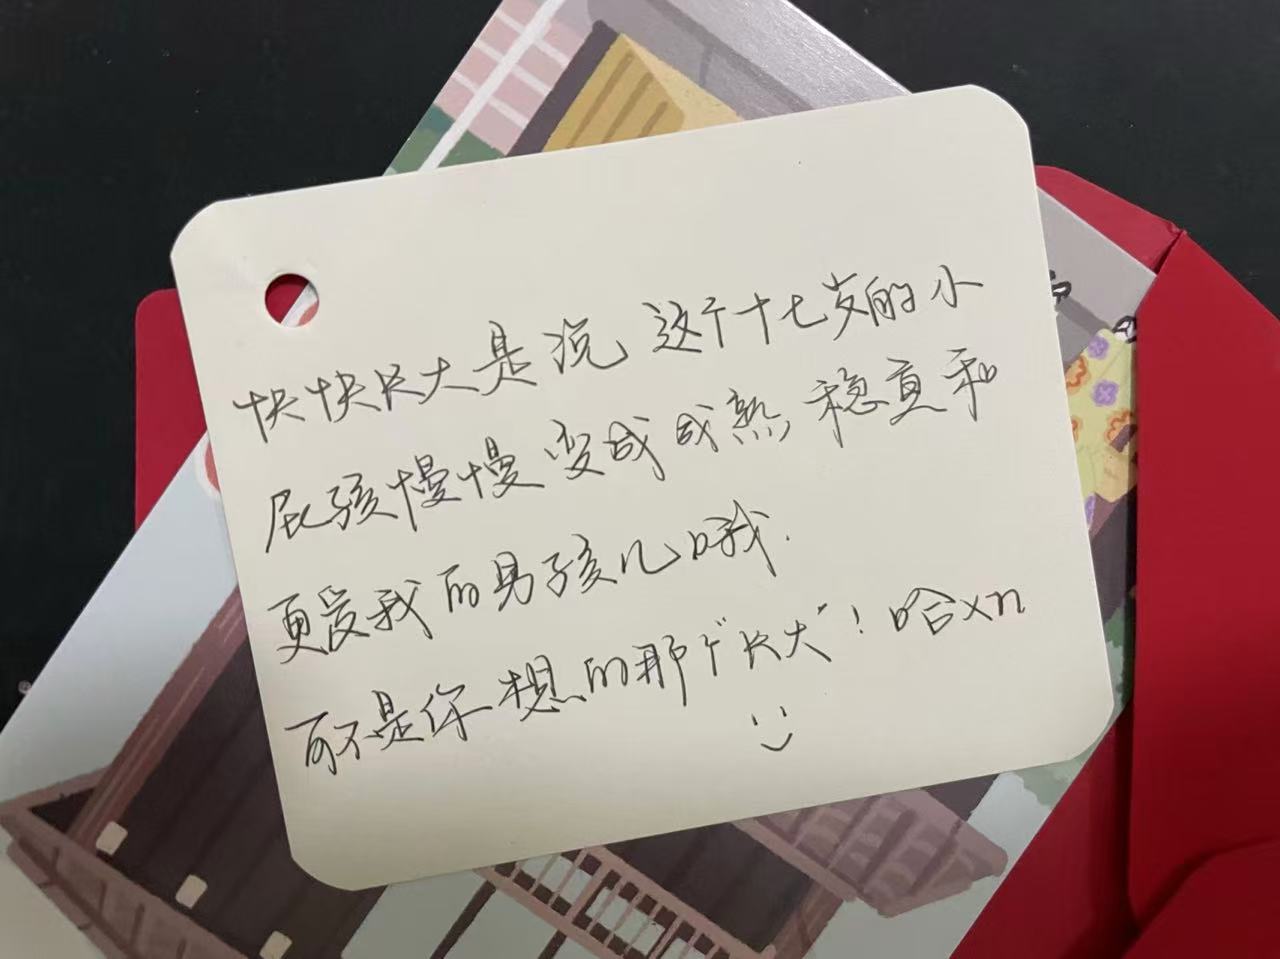 快快长大是说 这个十七岁的小
屁孩慢慢变成成熟稳重和
更爱我的男孩儿哦.
可不是你想的那个"长大"！哈xn